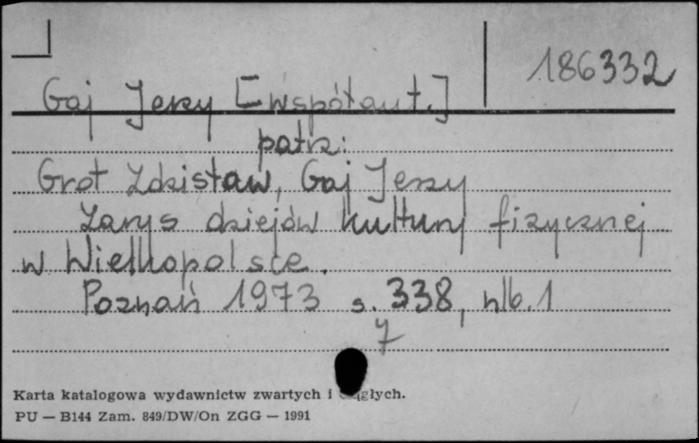 186332
Gaj Jerzy [współaut.]
patrz:
Grot Zdzisław, Gaj Jerzy
Zarys dziejów kultury fizycznej
w Wielkopolsce.
Poznań 1973 s. 338, nlb. 1
Karta katalogowa wydawnictw zwartych i ciągłych.
PU — B144 Zam. 849/DW/On ZGG — 1991